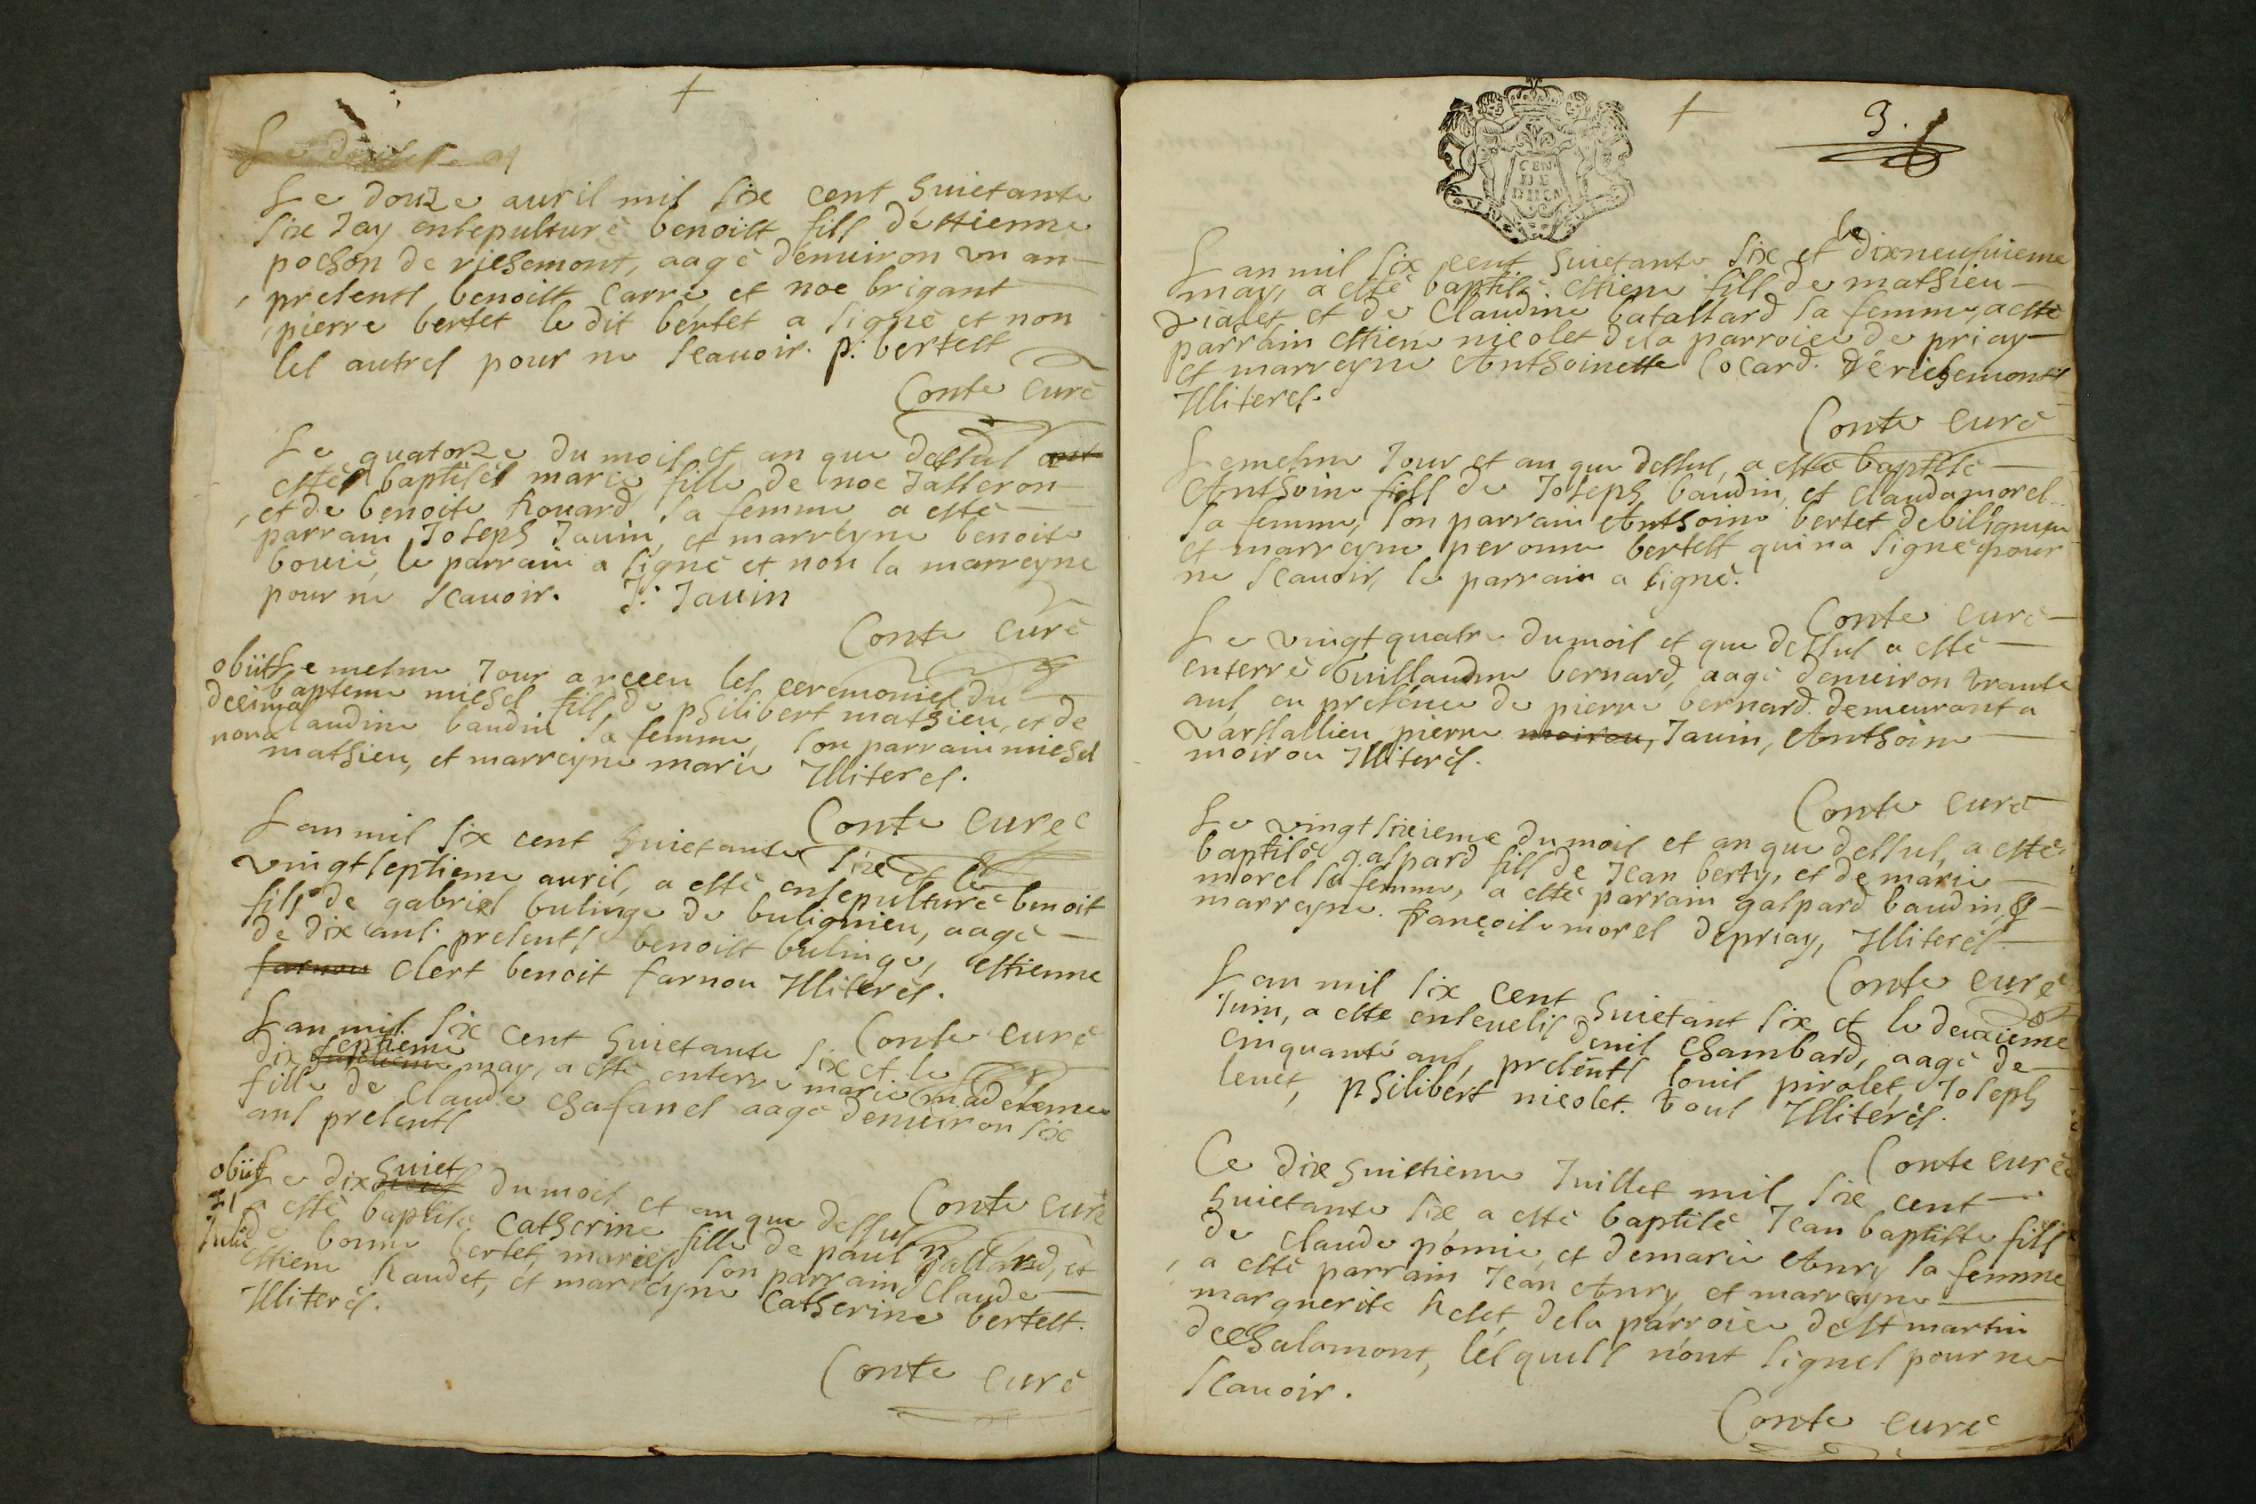 Le douze auril mil six cent huictante
six Jay ensepulturé benoist fils destienne
pochon de richemont, aagé denuiron un an
presents benoist carré, et noe brigant
pierre bertet le dit bertet a signé et non
les autres pour ne scauoir. p. bertest
Conte curé
Le quatorze du mois et an que dessus
esté baptisés marie fille de noe Jasseron
et de benoite Rouard sa femme a esté
parrain Joseph Jauin, et marreyne benoite
bouié, le parrain a signé et non la marreyne
pour ne scauoir. J. Jauin
Conte curé
obiit Le mesme Jour a receu les ceremonies du
decima bapteme michel fils de philibert mathieu, et de
nona claudine baudin sa femme, son parrain michel
mathieu, et marreyne marie Illiteres.
Conte curé
Lan mil six cent huictante six et le
vingtseptieme auril, a esté ensepulturé benoit
fils de gabriel bulinge de bulignieu, aagé
de dix ans. presents benoist bulinge, estienne
farnou clert benoit farnou Illiterés.
Conte curé
Lan mil six cent huictante six et le
dix septieme may, a esté enterre marie madeleme
fille de Claude chafanel aagé denuiron six
ans presents
Conte curé
obiit Le dix huiet du mois et an que dessus
21 a esté baptisé catherine fille de paul pallard, et
Julii de bonne bertet, mariés son parrain Claude
estiene Raudet, et marreyne Catherine bertest.
Illiterés.
Conte curé
3.
CEN
DE
Lan mil six cent huictante six et le dixneufuieme
may, a esté baptisé estiene fils de mathieu
vialet et de Claudine batallard sa femme, a esté
parrain estiene nicolet de la parroice de priay
et marreyne Anthoinette Cocard. de richemont
Illiteres.
Conte curé
Le mesme Jour et an que dessus, a esté baptisé
Anthoine fils de Joseph baudin, et clauda morel
sa femme, son parrain Anthoine bertet de bilignieu
et marreyne peronne bertest qui na signé pour
ne scauoir, le parrain a signé.
Conte curé
Le vingtquatre du mois et que dessus a esté
enterré Guillaume bernard, aagé denuiron trante
ans, en presence de pierre bernard. demeurant a
varsallieu, pierre moirou, Jauin, Anthoine
moirou Illiterés.
Conte curé
Le vingtsixieme du mois et an que dessus, a esté
baptisé gaspard fils de Jean berty, et de marie
morel sa femme, a esté parrain gaspard baudin
marreyne. françoise morel de priay, Illiterés.
Conte curé
Lan mil six cent huietant six et le deuxieme
Juin, a esté enseuelis denis chambard, aagé de
cinquante ans, presents louis pirolet, Joseph
leuet, philibert nicolet. tous Illiterés.
Conte curé
Ce dixhuictieme Juillet mil six cent
huietante six, a esté baptisé Jean baptiste fils
de claude pomie, et de marie Anry sa femme
a esté parrain Jean Anry, et marreyne
marguerite Relet, de la parroice de st martin
de chalamont, lesquels n'ont signes pour ne
scauoir.
Conte curé